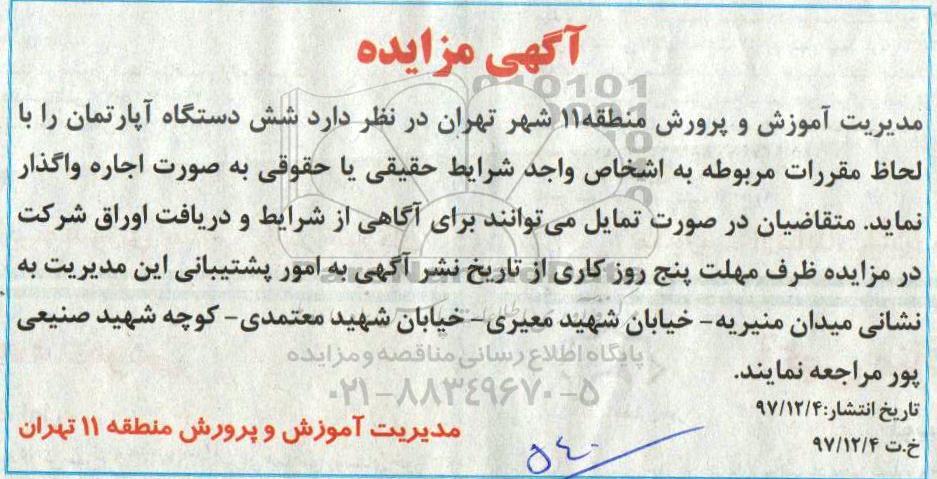 آگهی مزایده
مدیریت آموزش و پرورش منطقه۱۱ شهر تهران در نظر دارد شش دستگاه آپارتمان را با
لحاظ مقررات مربوطه به اشخاص واجد شرایط حقیقی یا حقوقی به صورت اجاره واگذار
نماید. متقاضیان در صورت تمایل می‌توانند برای آگاهی از شرایط و دریافت اوراق شرکت
در مزایده ظرف مهلت پنج روز کاری از تاریخ نشر آگهی به امور پشتیبانی این مدیریت به
نشانی میدان منیریه- خیابان شهید معیری- خیابان شهید معتمدی- کوچه شهید صنیعی
پایگاه اطلاع رسانی مناقصه و مزایده
پور مراجعه نمایند.
۰۲۱-۸۸۳۴۹۶۷۰-۵
تاریخ انتشار:۹۷/۱۲/۴
مدیریت آموزش و پرورش منطقه ۱۱ تهران
خ.ت ۹۷/۱۲/۴
۵۴۰